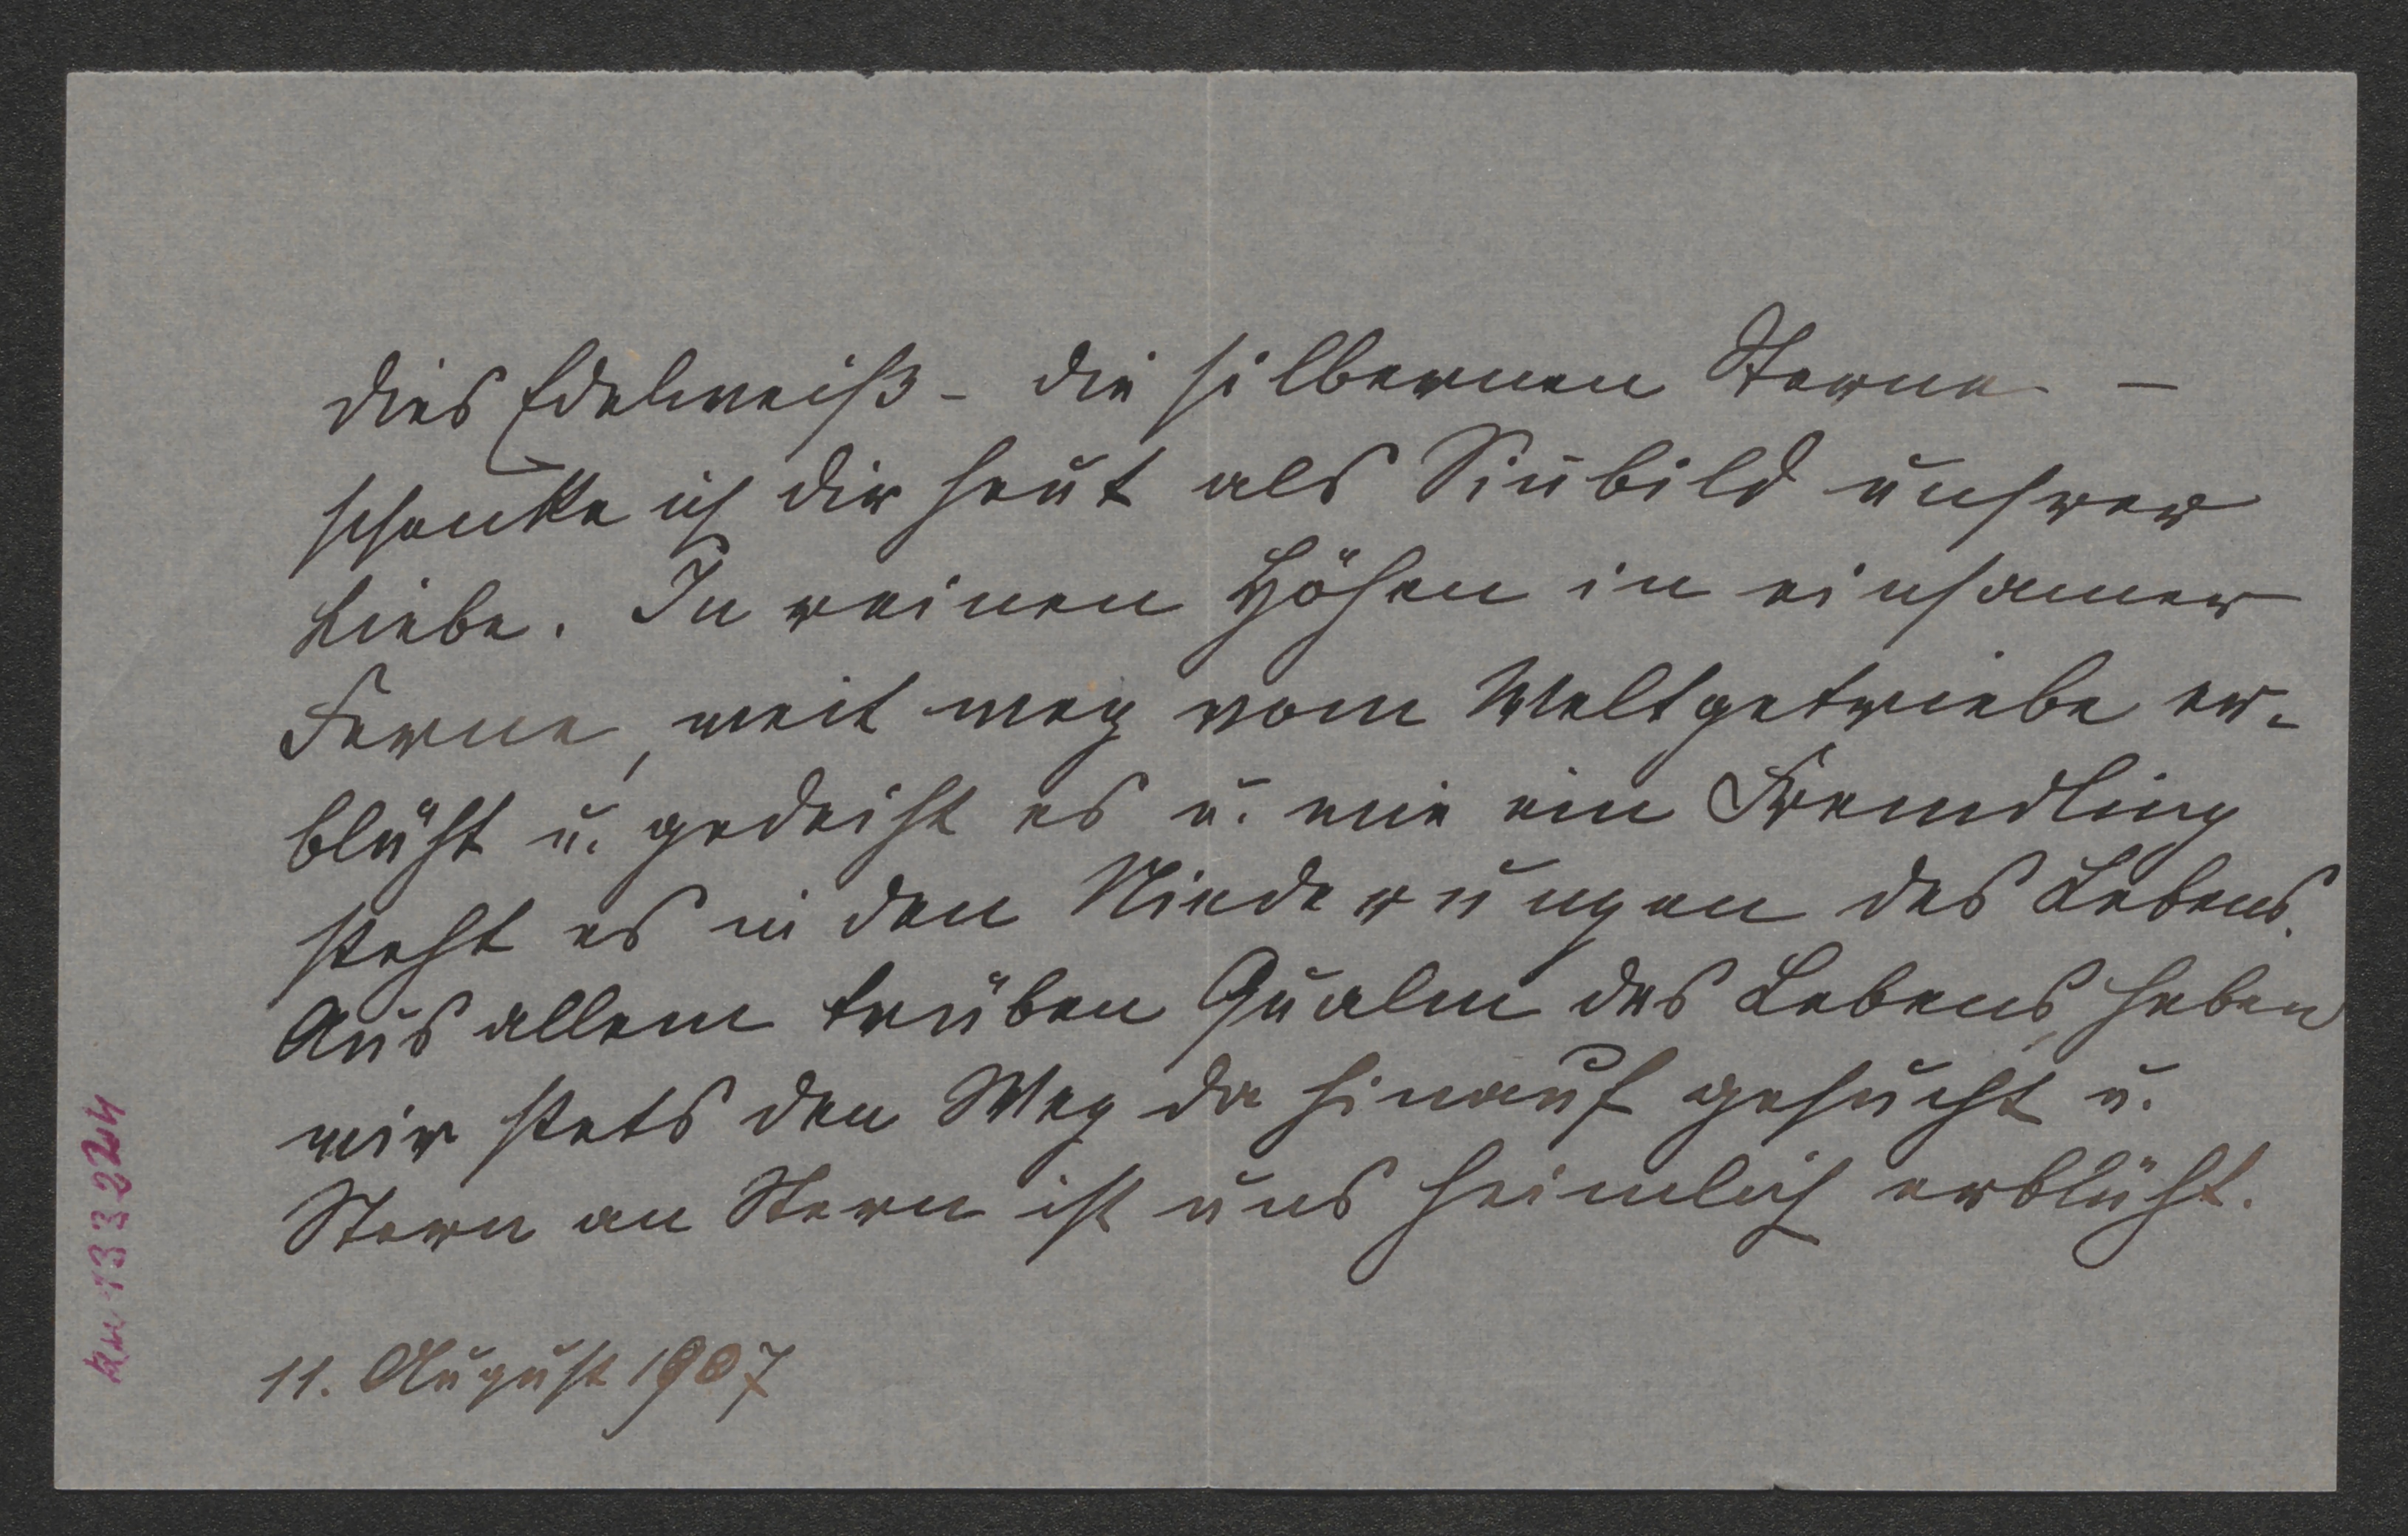 dies Edelweiß - die silbernen Sterne -
schenke ich dir heut als Sinnbild unsrer
Liebe. In reinen Höhen in einsamer
Ferne, weit weg vom Weltgetriebe er-
blüht u. gedeiht es u. wie ein Fremdling
steht es in den Niederungen des Lebens.
Aus allem trüben Qualm des Lebens, haben
wir stets den Weg da hinauf gesucht u.
Stern an Stern ist uns heimlich erblüht.
11. August 1907
133224